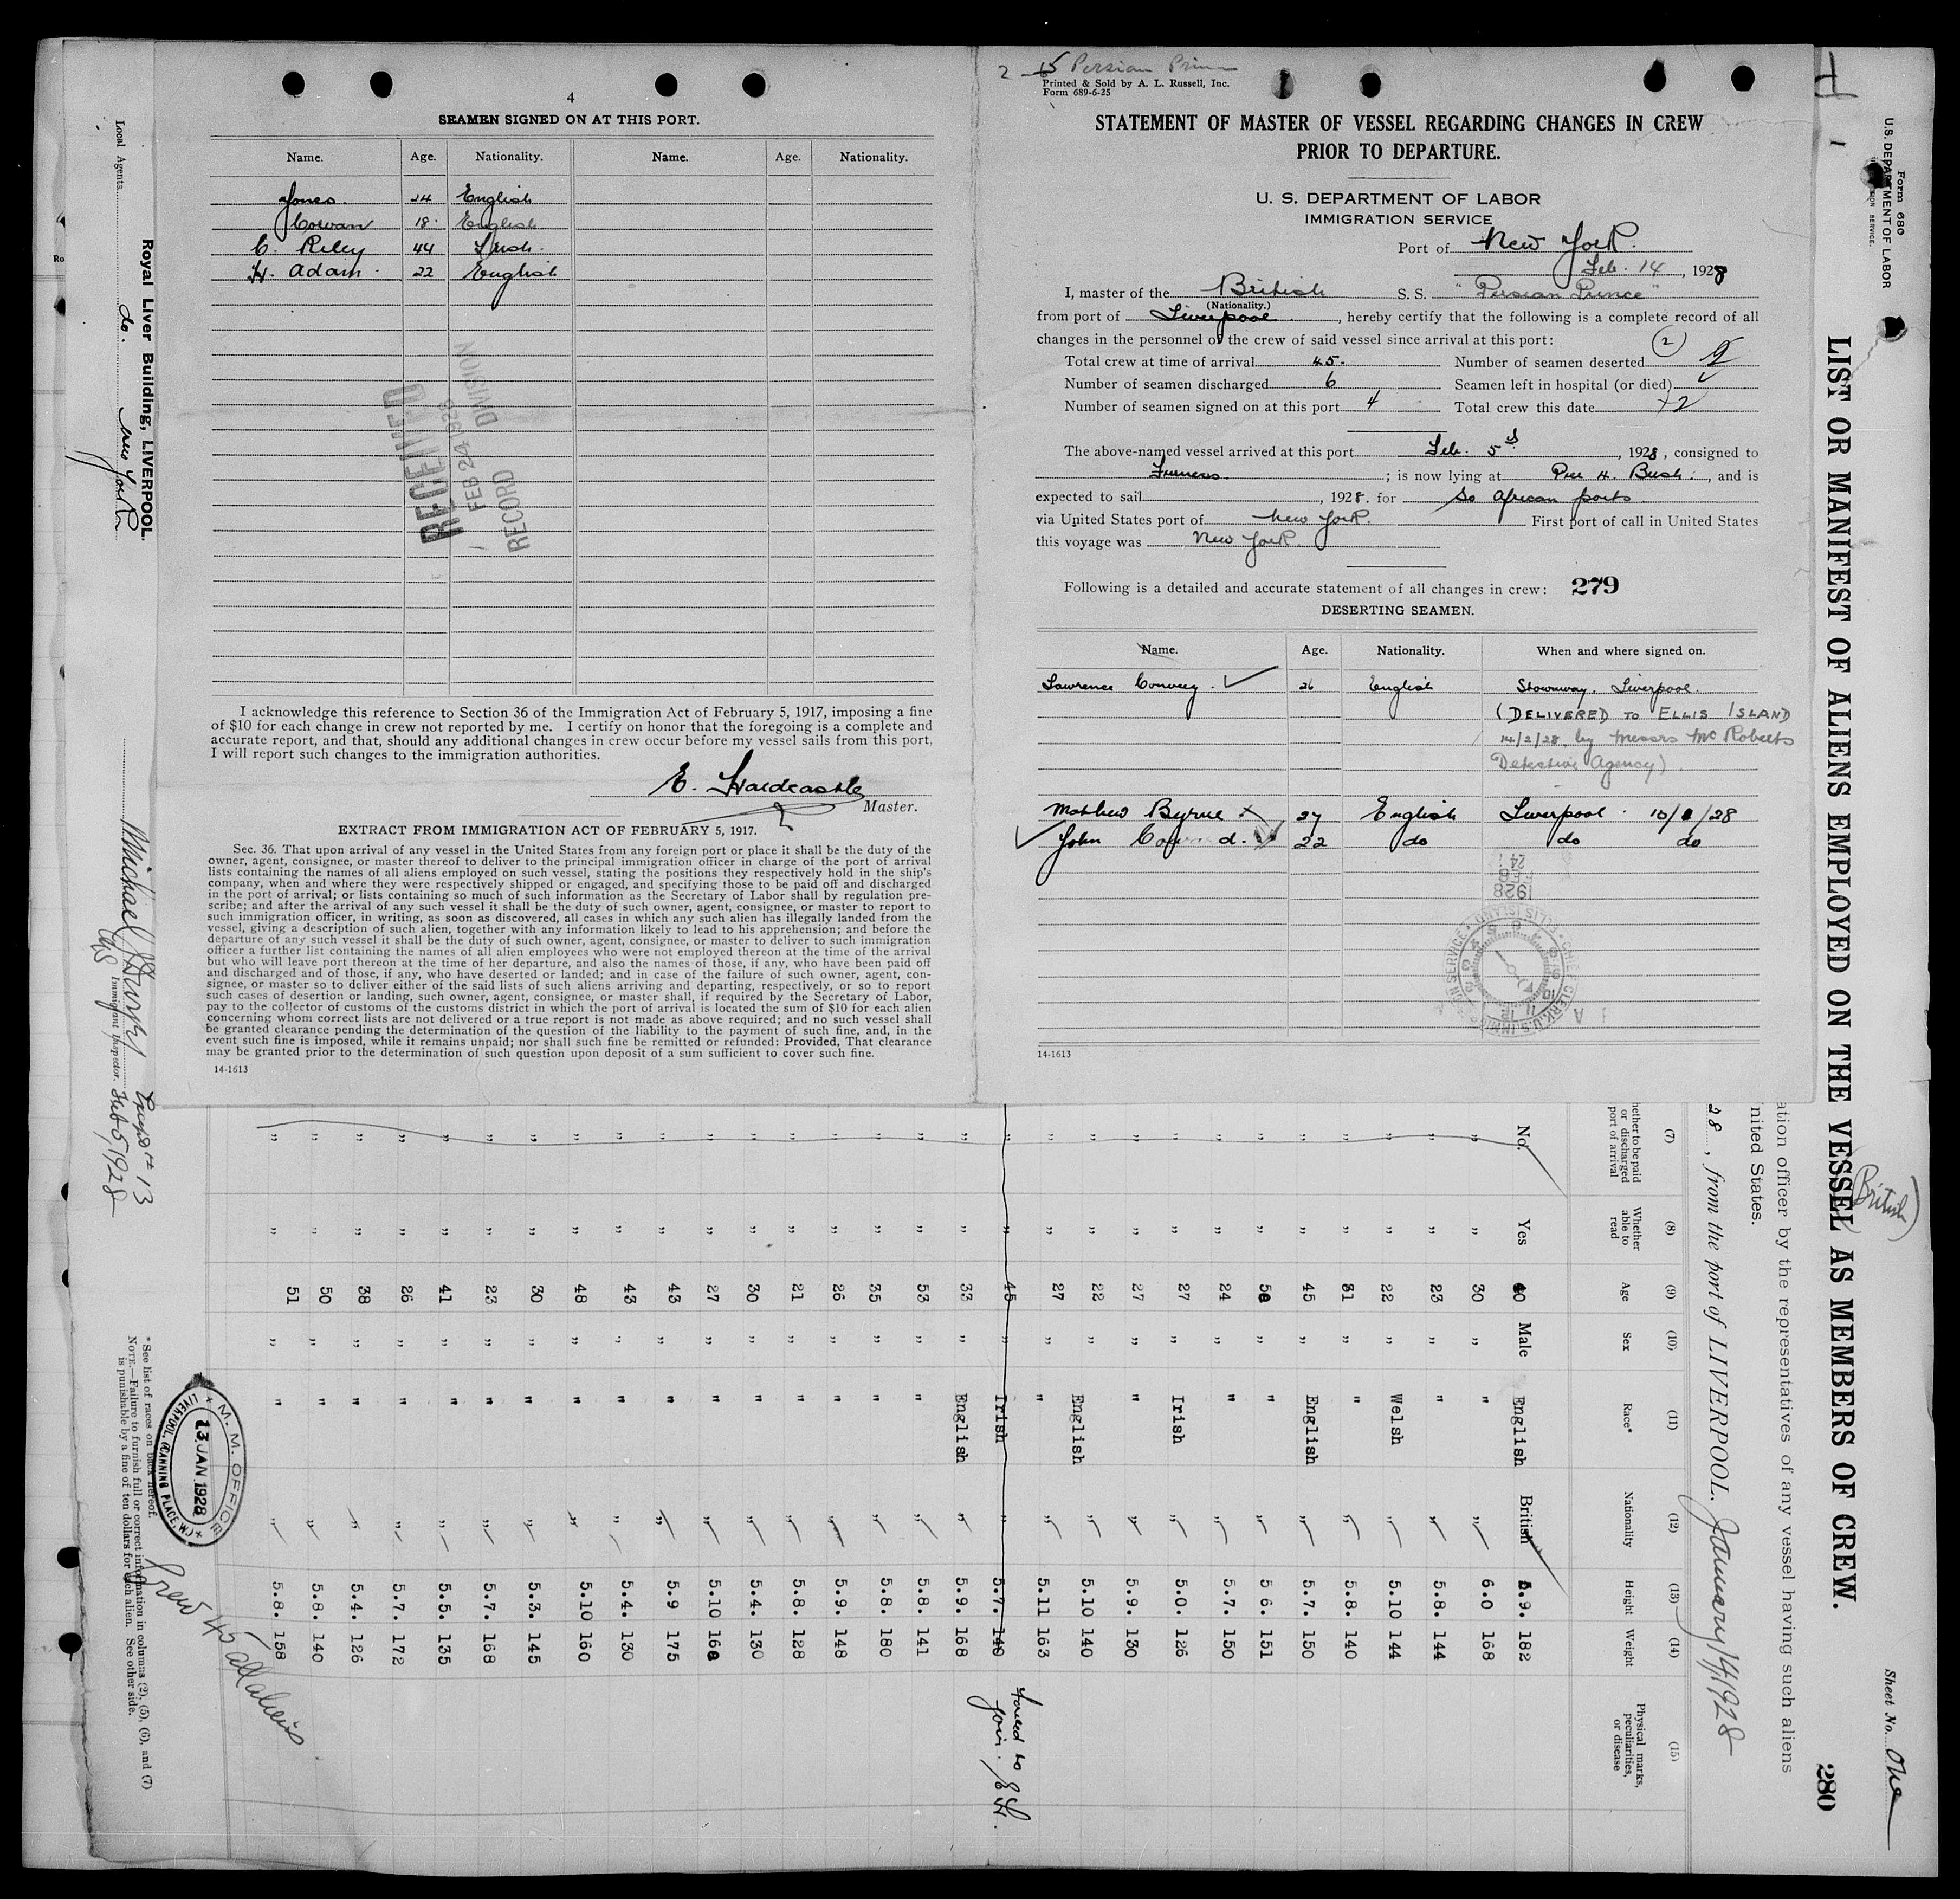 4
SEAMEN SIGNED ON AT THIS PORT.
Name. Age. Nationality. Name. Age. Nationality.
Jones 24 English
Cowan 18 English
C. Riley 44 Irish.
H. Adam. 22 English
RECEIVED
FEB 24 1928
RECORD DIVISION
I acknowledge this reference to Section 36 of the Immigration Act of February 5, 1917, imposing a fine
of $10 for each change in crew not reported by me. I certify on honor that the foregoing is a complete and
accurate report, and that, should any additional changes in crew occur before my vessel sails from this port,
I will report such changes to the immigration authorities.
E. Hardcastle
Master.
EXTRACT FROM IMMIGRATION ACT OF FEBRUARY 5, 1917.
Sec. 36. That upon arrival of any vessel in the United States from any foreign port or place it shall be the duty of the
owner, agent, consignee, or master thereof to deliver to the principal immigration officer in charge of the port of arrival
lists containing the names of all aliens employed on such vessel, stating the positions they respectively hold in the ship's
company, when and where they were respectively shipped or engaged, and specifying those to be paid off and discharged
in the port of arrival; or lists containing so much of such information as the Secretary of Labor shall by regulation pre-
scribe; and after the arrival of any such vessel it shall be the duty of such owner, agent, consignee, or master to report to
such immigration officer, in writing, as soon as discovered, all cases in which any such alien has illegally landed from the
vessel, giving a description of such alien, together with any information likely to lead to his apprehension; and before the
departure of any such vessel it shall be the duty of such owner, agent, consignee, or master to deliver to such immigration
officer a further list containing the names of all alien employees who were not employed thereon at the time of the arrival
but who will leave port thereon at the time of her departure, and also the names of those, if any, who have been paid off
and discharged and of those, if any, who have deserted or landed; and in case of the failure of such owner, agent, con-
signee, or master so to deliver either of the said lists of such aliens arriving and departing, respectively, or so to report
such cases of desertion or landing, such owner, agent, consignee, or master shall, if required by the Secretary of Labor,
pay to the collector of customs of the customs district in which the port of arrival is located the sum of $10 for each alien
concerning whom correct lists are not delivered or a true report is not made as above required; and no such vessel shall
be granted clearance pending the determination of the question of the liability to the payment of such fine, and, in the
event such fine is imposed, while it remains unpaid; nor shall such fine be remitted or refunded: Provided, That clearance
may be granted prior to the determination of such question upon deposit of a sum sufficient to cover such fine.
14-1613
2 - 15 Persian Prin
Printed & Sold by A. L. Russell, Inc.
Form 689-6-25
STATEMENT OF MASTER OF VESSEL REGARDING CHANGES IN CREW
PRIOR TO DEPARTURE.
U. S. DEPARTMENT OF LABOR
IMMIGRATION SERVICE
Port of New York.
Feb. 14, 1928
I, master of the British S. S. "Persian Prince"
(Nationality.)
from port of Liverpool, hereby certify that the following is a complete record of all
changes in the personnel of the crew of said vessel since arrival at this port:
(2)
Total crew at time of arrival 45. Number of seamen deserted 2
Number of seamen discharged 6 Seamen left in hospital (or died)
Number of seamen signed on at this port 4 Total crew this date
The above-named vessel arrived at this port Feb. 5, 1928, consigned to
Furness; is now lying at Pier 4. Bush., and is
expected to sail, 1928. for So African ports
via United States port of New York. First port of call in United States
this voyage was New York.
Following is a detailed and accurate statement of all changes in crew: 279
DESERTING SEAMEN.
Name. Age. Nationality. When and where signed on.
Lawrence Convey. 26 English Stowaway. Liverpool.
(DELIVERED TO ELLIS ISLAND
14/2/28. by Messrs McRoberts
Detective Agency)
Mathew Byrne x 27 English Liverpool. 10/1/28
John d. 22 do do do
FEB 24
1928
ELLIS ISLAND
CHIEF CLERK, U.S. IMMIGRATION SERVICE
14-1613
Form 680
U.S. DEPARTMENT OF LABOR
Sheet No. One
LIST OR MANIFEST OF ALIENS EMPLOYED ON THE VESSEL AS MEMBERS OF CREW.
280
(British)
ation officer by the representatives of any vessel having such aliens
nited States.
28, from the port of LIVERPOOL. January 14/1928
(7) (8) (9) (10) (11) (12) (13) (14) (15)
hether to be paid or discharged port of arrival Whether able to read Age Sex Race* Nationality Height Weight Physical marks, peculiarities, or disease
No. Yes 40 Male English British 5.9. 182
" " 30 " " " 6.0 168
" " 23 " " " 5.8. 144
" " 22 " Welsh " 5.10 144
" " 31 " " " 5.8. 140
" " 45 " English " 5.7. 150
" " 50 " " " 5 6. 151
" " 24 " " " 5.7. 150
" " 27 " Irish " 5.0. 126
" " 27 " " " 5.9. 130
" " 22 " English " 5.10 140
" " 27 " " " 5.11 163
" " 45 " Irish " 5.7. 140 Failed to join. E.H.
" " 33 " English " 5.9. 168
" " 53 " " " 5.8. 141
" " 35 " " " 5.8. 180
" " 26 " " " 5.9. 148
" " 21 " " " 5.8. 128
" " 30 " " " 5.4. 130
" " 27 " " " 5.10 168
" " 43 " " " 5.9 175
" " 43 " " " 5.4. 130
" " 48 " " " 5.10 160
" " 30 " " " 5.3. 145
" " 23 " " " 5.7. 168
" " 41 " " " 5.5. 135
" " 26 " " " 5.7. 172
" " 38 " " " 5.4. 126
" " 50 " " " 5.8. 140
" " 51 " " " 5.8. 158
Crew 45 all aliens
M. M. OFFICE
13 JAN 1928
LIVERPOOL, (CANNING PLACE, W.)
*See list of races on back hereof.
NOTE.—Failure to furnish full or correct information in columns (2), (5), (6), and (7)
is punishable by a fine of ten dollars for each alien. See other side.
Royal Liver Building, LIVERPOOL.
Local Agents do. New York
Michael
Immigrant Inspector.
Feb 5, 1928